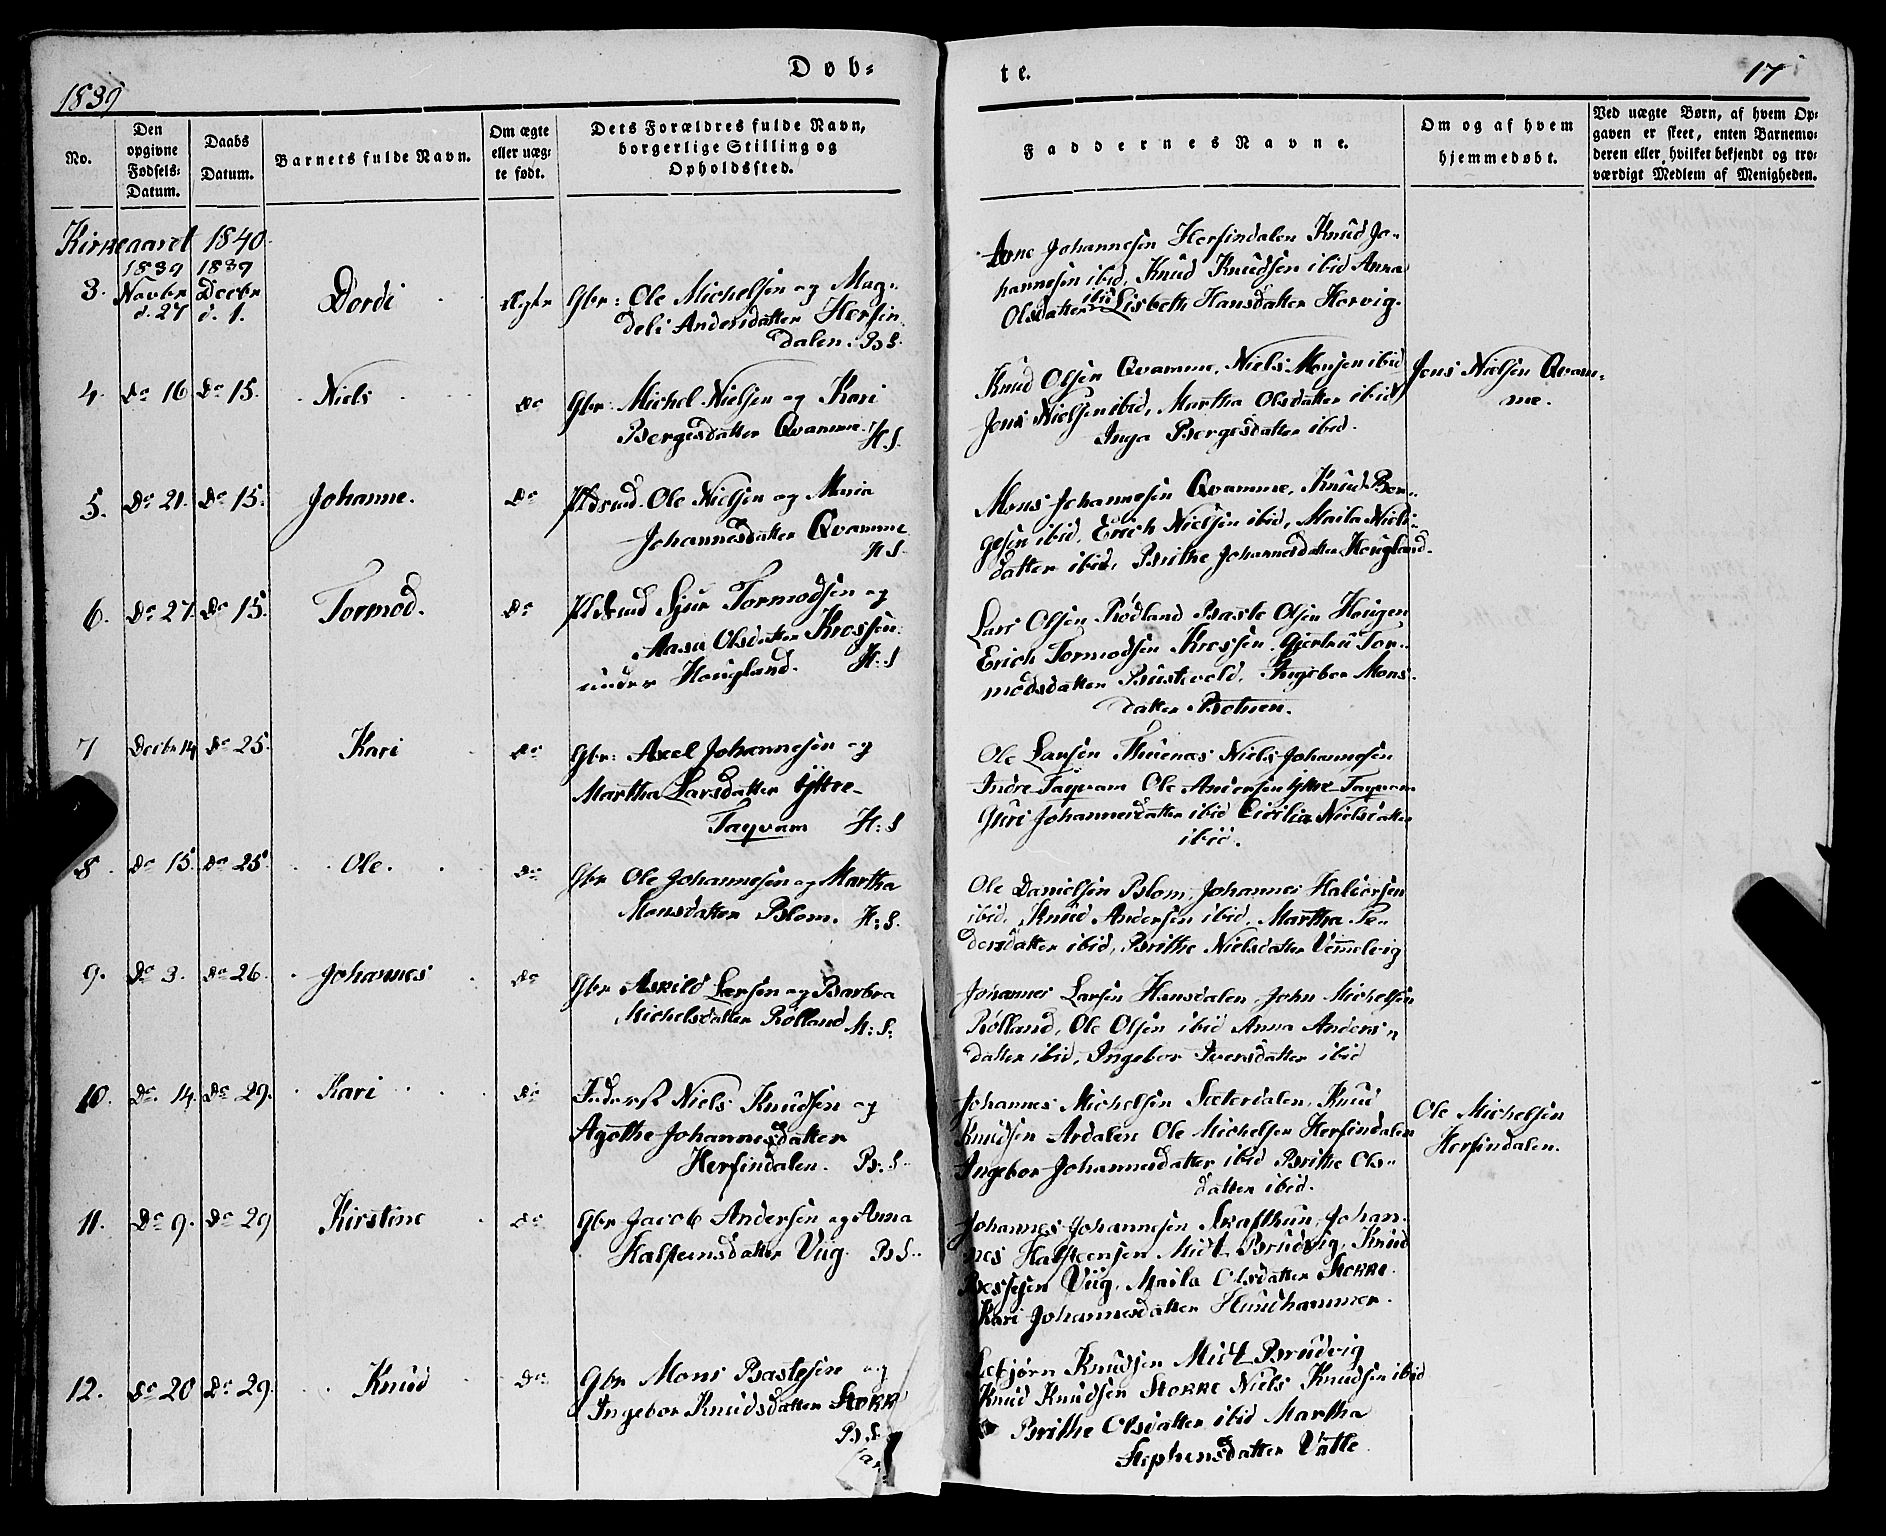 1839
Døb-
te.
17
No.
Den opgivne Fødsels-Datum.
Daabs Datum.
Barnets fulde Navn.
Om ægte eller uægte født.
Dets Forældres fulde Navn, borgerlige Stilling og Opholdssted.
Faddernes Navne.
Om og af hvem hjemmedøbt.
Ved uægte Børn, af hvem Opgaven er skeet, enten Barnemoderen eller hvilket bekjendt og troværdigt Medlem af Menigheden.
Kirkeaaret 1840.
1839 1839
3. Novbr Decbr
d. 27 d. 1.
Dordi
Ægte
Gbr: Ole Michelsen og Mag-
deli Andersdatter Herfin
dalen. B S.
Arne Johannesen Herfindalen Knud Jo-
hannesen ibid, Knud Knudsen ibid Anna
Olsdatter ibid Lisbeth Hansdatter Hervig.
4. Do 16 Do 15. Niels Do
Gbr: Michel Nielsen og Kari
Bergesdatter Qvamme. H. S.
Knud Olsen Qvamme, Niels Monsen ibid
Jens Nielsen ibid, Martha Olsdatter ibid
Inga Bergesdatter ibid.
Jens Nielsen Qvam-
me.
5. Do 21. Do 15. Johanne. Do
Pldsmd. Ole Nielsen og Maria
Johannesdatter Qvamme
H S.
Mons Johannesen Qvamme, Knud Ber-
gesen ibid, Erich Nielsen ibid, Maila Niels-
datter ibid, Brithe Johannesdatter Hougland.
6. Do 27. Do 15. Tormod. Do
Pldsmd Sjur Tormodsen og
Aasa Olsdatter Krossen
under Hougland. H: S
Lars Olsen Rødland Baste Olsen Hougen
Erich Tormodsen Krossen, Gjertru Tor-
modsdatter Bustevold, Ingebor Mons-
datter Botnen.
7 Decbr 14 Do 25. Kari Do
Gbr: Axel Johannesen og
Martha Larsdatter Yttre-
Taqvam H: S
Ole Larsen Thuenæs Niels Johannesen
Indre Taqvam Ole Andersen Yttre Taqvam
Guri Johannesdatter ibid Cicilia Nielsdatter
ibid.
8 Do 15. Do 25. Ole. Do
Gbr Ole Johannesen og Martha
Monsdatter Blom. H: S.
Ole Danielsen Blom, Johannes Halvorsen
ibid, Knud Andersen ibid, Martha Pe-
dersdatter ibid, Brithe Nielsdatter Vemelvig
9. Do 3. Do 26. Johannes Do
Gbr Askild Larsen og Barbra
Michelsdatter Rølland H: S:
Johannes Larsen Hansdalen John Michelsen
Rølland, Ole Olsen ibid Anna Anders-
datter ibid, Ingebor Iversdatter ibid
10. Do. 14. Do 29. Kari Do
Inderst Niels Knudsen og
Agathe Johannesdatter
Herfindalen. B: S.
Johannes Michelsen Sæterdalen, Knud
Knudsen Ardalen Ole Michelsen Herfindalen
Ingebor Johannesdatter ibid Brithe Ols-
datter ibid.
Ole Michelsen
Herfindalen.
11. Do 9. Do 29 Kirstine Do
Gbr Jacob Andersen og Anna
Halsteinsdatter Viig. B S.
Johannes Johannesen Skafthun, Johan-
nes Halsteensen Midt Brudvig, Knud
Bessesen Viig, Maila Olsdatter Storre.
Kari Johannesdatter Hundhammer.
12. Do 20 Do 29. Knud Do
Gbr Mons Bastesen og
Ingebor Knudsdatter
B S.
Knudsen Midt Brudvig
Knud Knudsen Niels Knudsen ibid
Brithe Olsdatter ibid Martha
Stephensdatter Vatle.